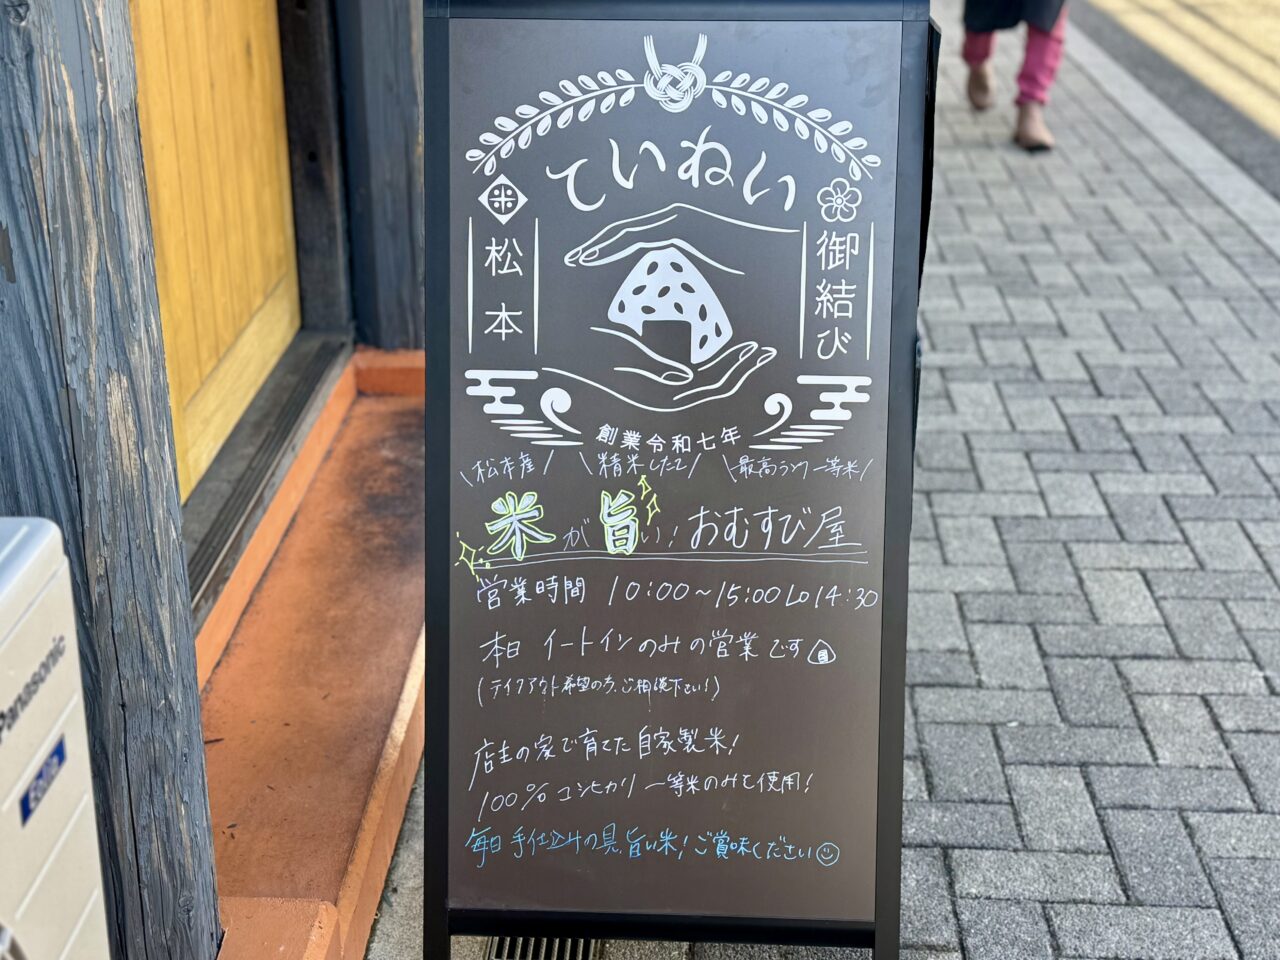 ていねい
米
松本
御結び
創業令和七年
\松本産/ \精米したて/ \最高ランク一等米/
米が旨い!おむすび屋
営業時間 10:00~15:00 Lo14:30
本日 イートインのみの営業です
(テイクアウト希望の方、ご相談下さい!)
店主の家で育てた自家製米!
100%コシヒカリ 一等米のみを使用!
毎日手仕込みの具、旨い米!ご賞味ください
Panasonic
Eolia